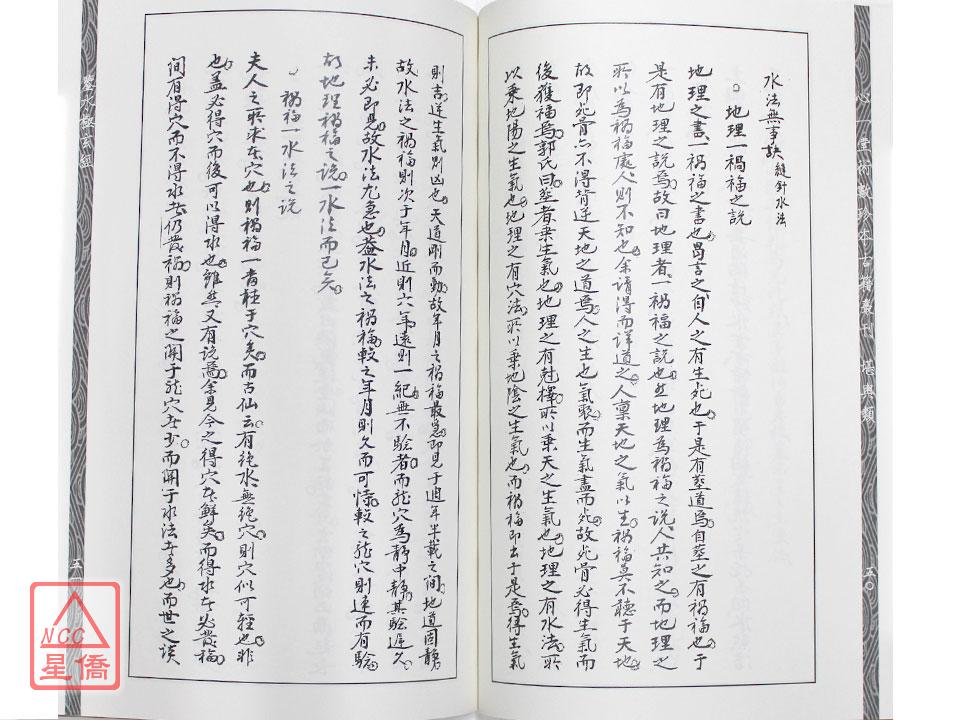 心一堂術數珍本古籍叢刊　堪輿類
五〇
水法無事訣縫針水法
○地理一禍福之說
地理之書一禍福之書也曷言之自人之有生死也于是有塟道焉自塟之有禍福也于
是有地理之說焉故曰地理者一禍福之說也然地理為禍福之說人共知之而地理之
所以為禍福處人則不知也余請得而詳道之人稟天地之氣以生禍福莫不聽于天地
故即死骨亦不得背逆天地之道焉人之生也氣聚而生氣盡而死故死骨必得生氣而
後獲福焉郭氏曰塟者乗生氣也地理之有尅擇所以乗天之生氣也地理之有水法所
以乗地陽之生氣也地理之有穴法所以乗地陰之生氣也而禍福即出于是焉得生氣
則吉逆生氣則凶也天道剛而動故年月之禍福最急即見于週年半載之間地道固靜
故水法之禍福則次于年月近則六年遠則一紀無不驗者而龍穴為靜中靜其驗遲久
未必即見故水法尤急也葢水法之禍福較之年月則久而可恃較之龍穴則速而有驗
故地理禍福之說一水法而已矣
○禍福一水法之說
夫人之所求在穴也則禍福一責在于穴矣而古仙云有純水無純穴則穴似可輕也非
也盖必得穴而後可以得水也雖然又有說焉余見今之得穴者鮮矣而得水者必發福
間有得穴而不得水者仍發禍則禍福之關于龍穴者少而關于水法者多也而世之談
五一
NCC
星僑